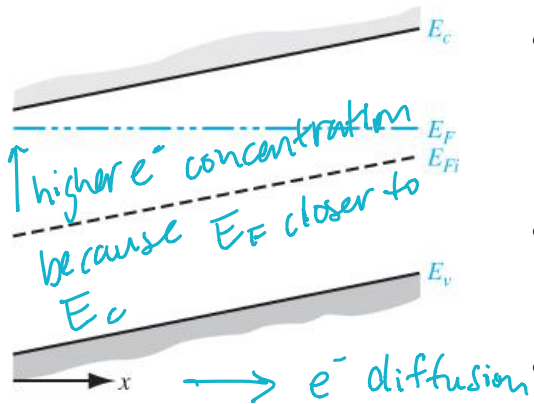 E_c
E_F
E_Fi
↑ higher e⁻ concentration
because E_F closer to
E_c
E_v
x
→ e⁻ diffusion